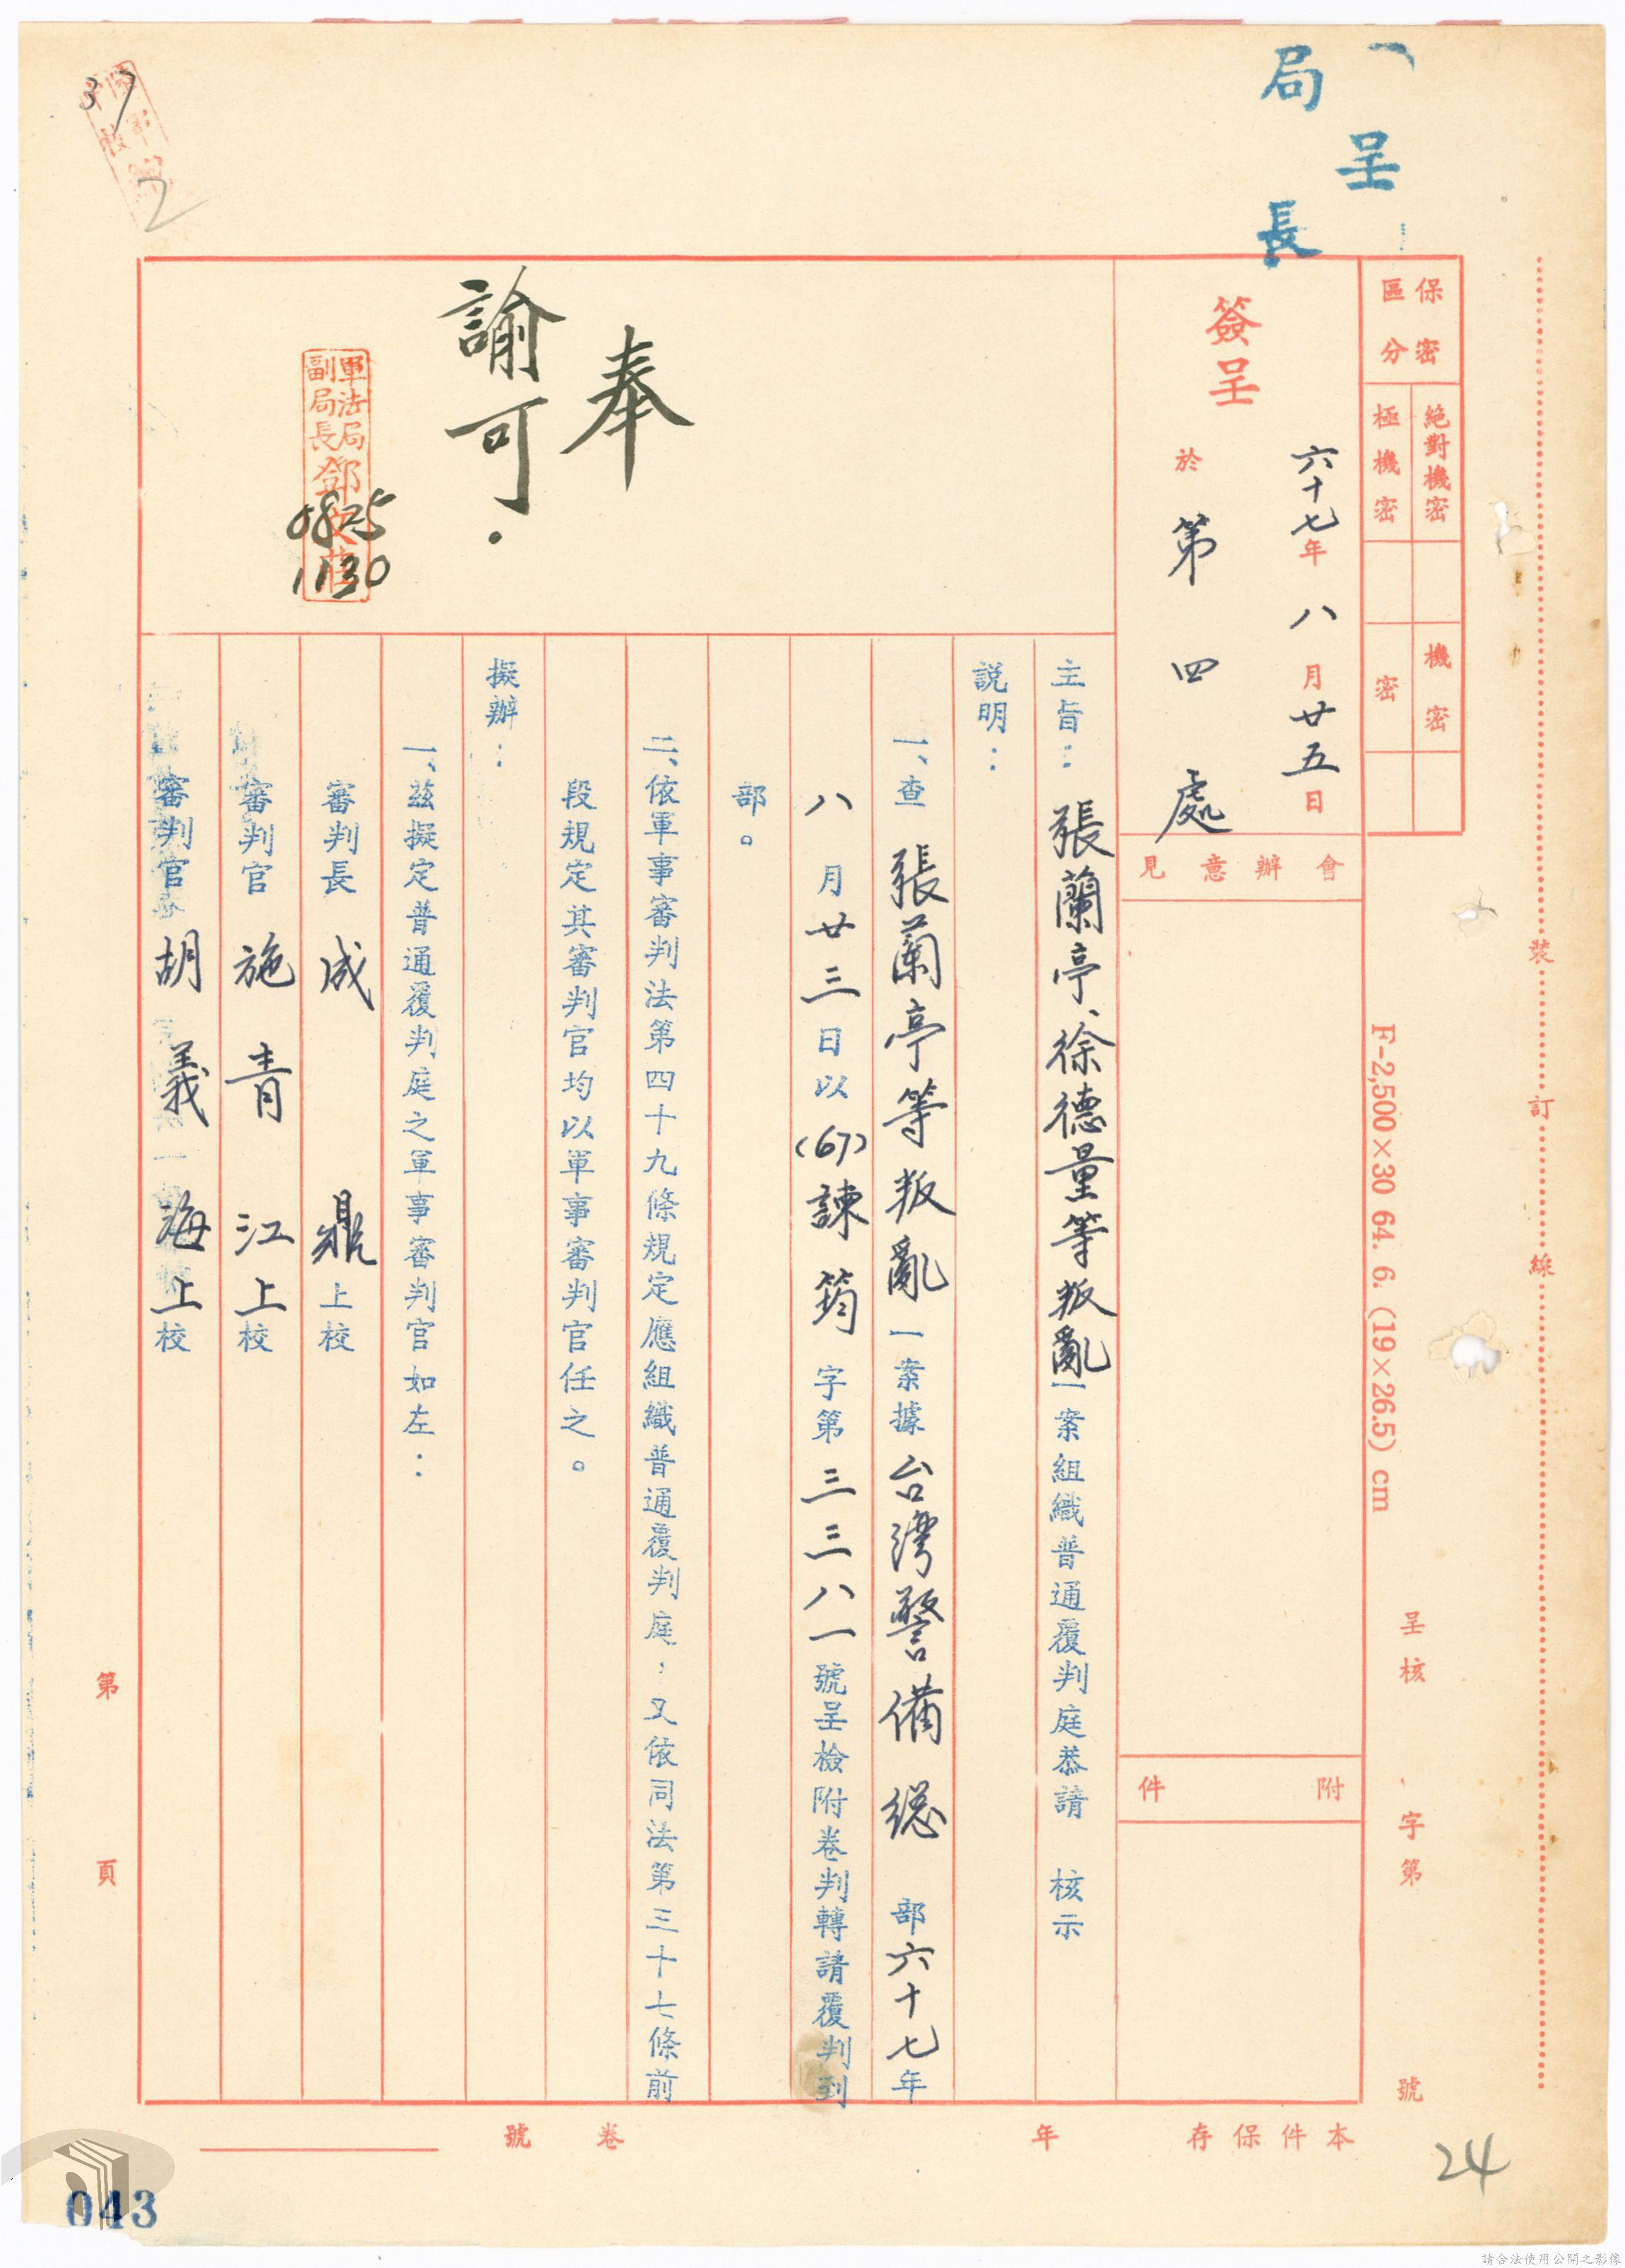 呈
局長
保密區分
絕對機密
極機密
機密
密
簽呈
六十七年八月廿五日
於第四處
會辦意見
附件
奉
諭可.
軍法局副局長鄧
0825
1130
主旨：張蘭亭、徐德量等叛亂一案組織普通覆判庭恭請　核示
說明：
一、查張蘭亭等叛亂一案據台灣警備總部六十七年
八月廿三日以(67)諫筠字第三三八一號呈檢附卷判轉請覆判到
部。
二、依軍事審判法第四十九條規定應組織普通覆判庭，又依同法第三十七條前
段規定其審判官均以軍事審判官任之。
擬辦：
一、茲擬定普通覆判庭之軍事審判官如左：
審判長　成　鼎上校
審判官　施青江上校
審判官　胡義海上校
裝訂線
F-2,500×30 64. 6. (19×26.5) cm
呈核
字第　號
本件保存　年
卷號
第　頁
37
2
24
043
請合法使用公開之影像